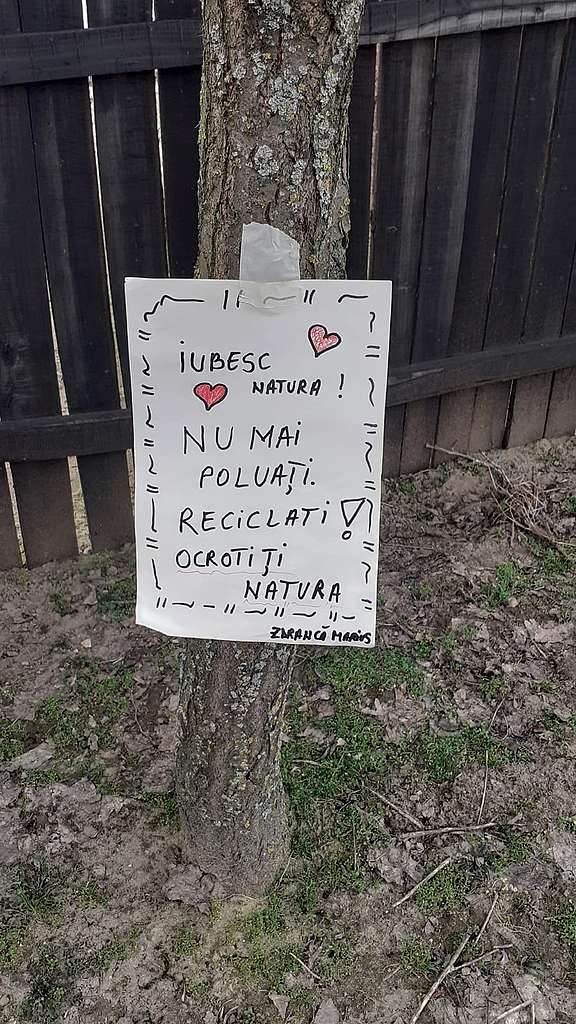 iUBESC
NATURA !
NU MAi
POLUAȚI.
RECiCLATi !
OCROTiȚi
NATURA
ZDRANCĂ MARiUS